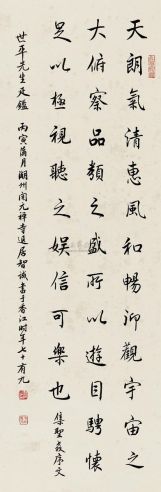 天朗氣清惠風和暢仰觀宇宙之
大俯察品類之盛所以遊目騁懷
足以極視聽之娛信可樂也 集聖教序文
世平先生是鑑
丙寅蒲月湖州開元禪寺退居智誠書于香江時年七十有九